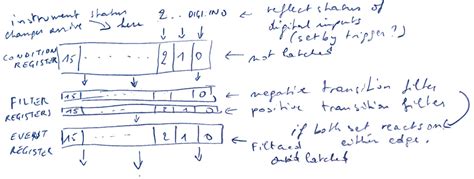 instrument status
changes arrive → here
2 . . DIGI.IN0 ← reflect status of
digital inputs
(set by trigger?)
CONDITION
REGISTER 15 . . . . . . 2 1 0 ← not latched
FILTER
REGISTERS
15 . . . . . . 1 0 ← negative transition filter
15 . . . . . . 2 1 0 ← positive transition filter
EVENT
REGISTER 15 . . . . . . 2 1 0
if both set reacts on
either edge.
Filtered
and latched